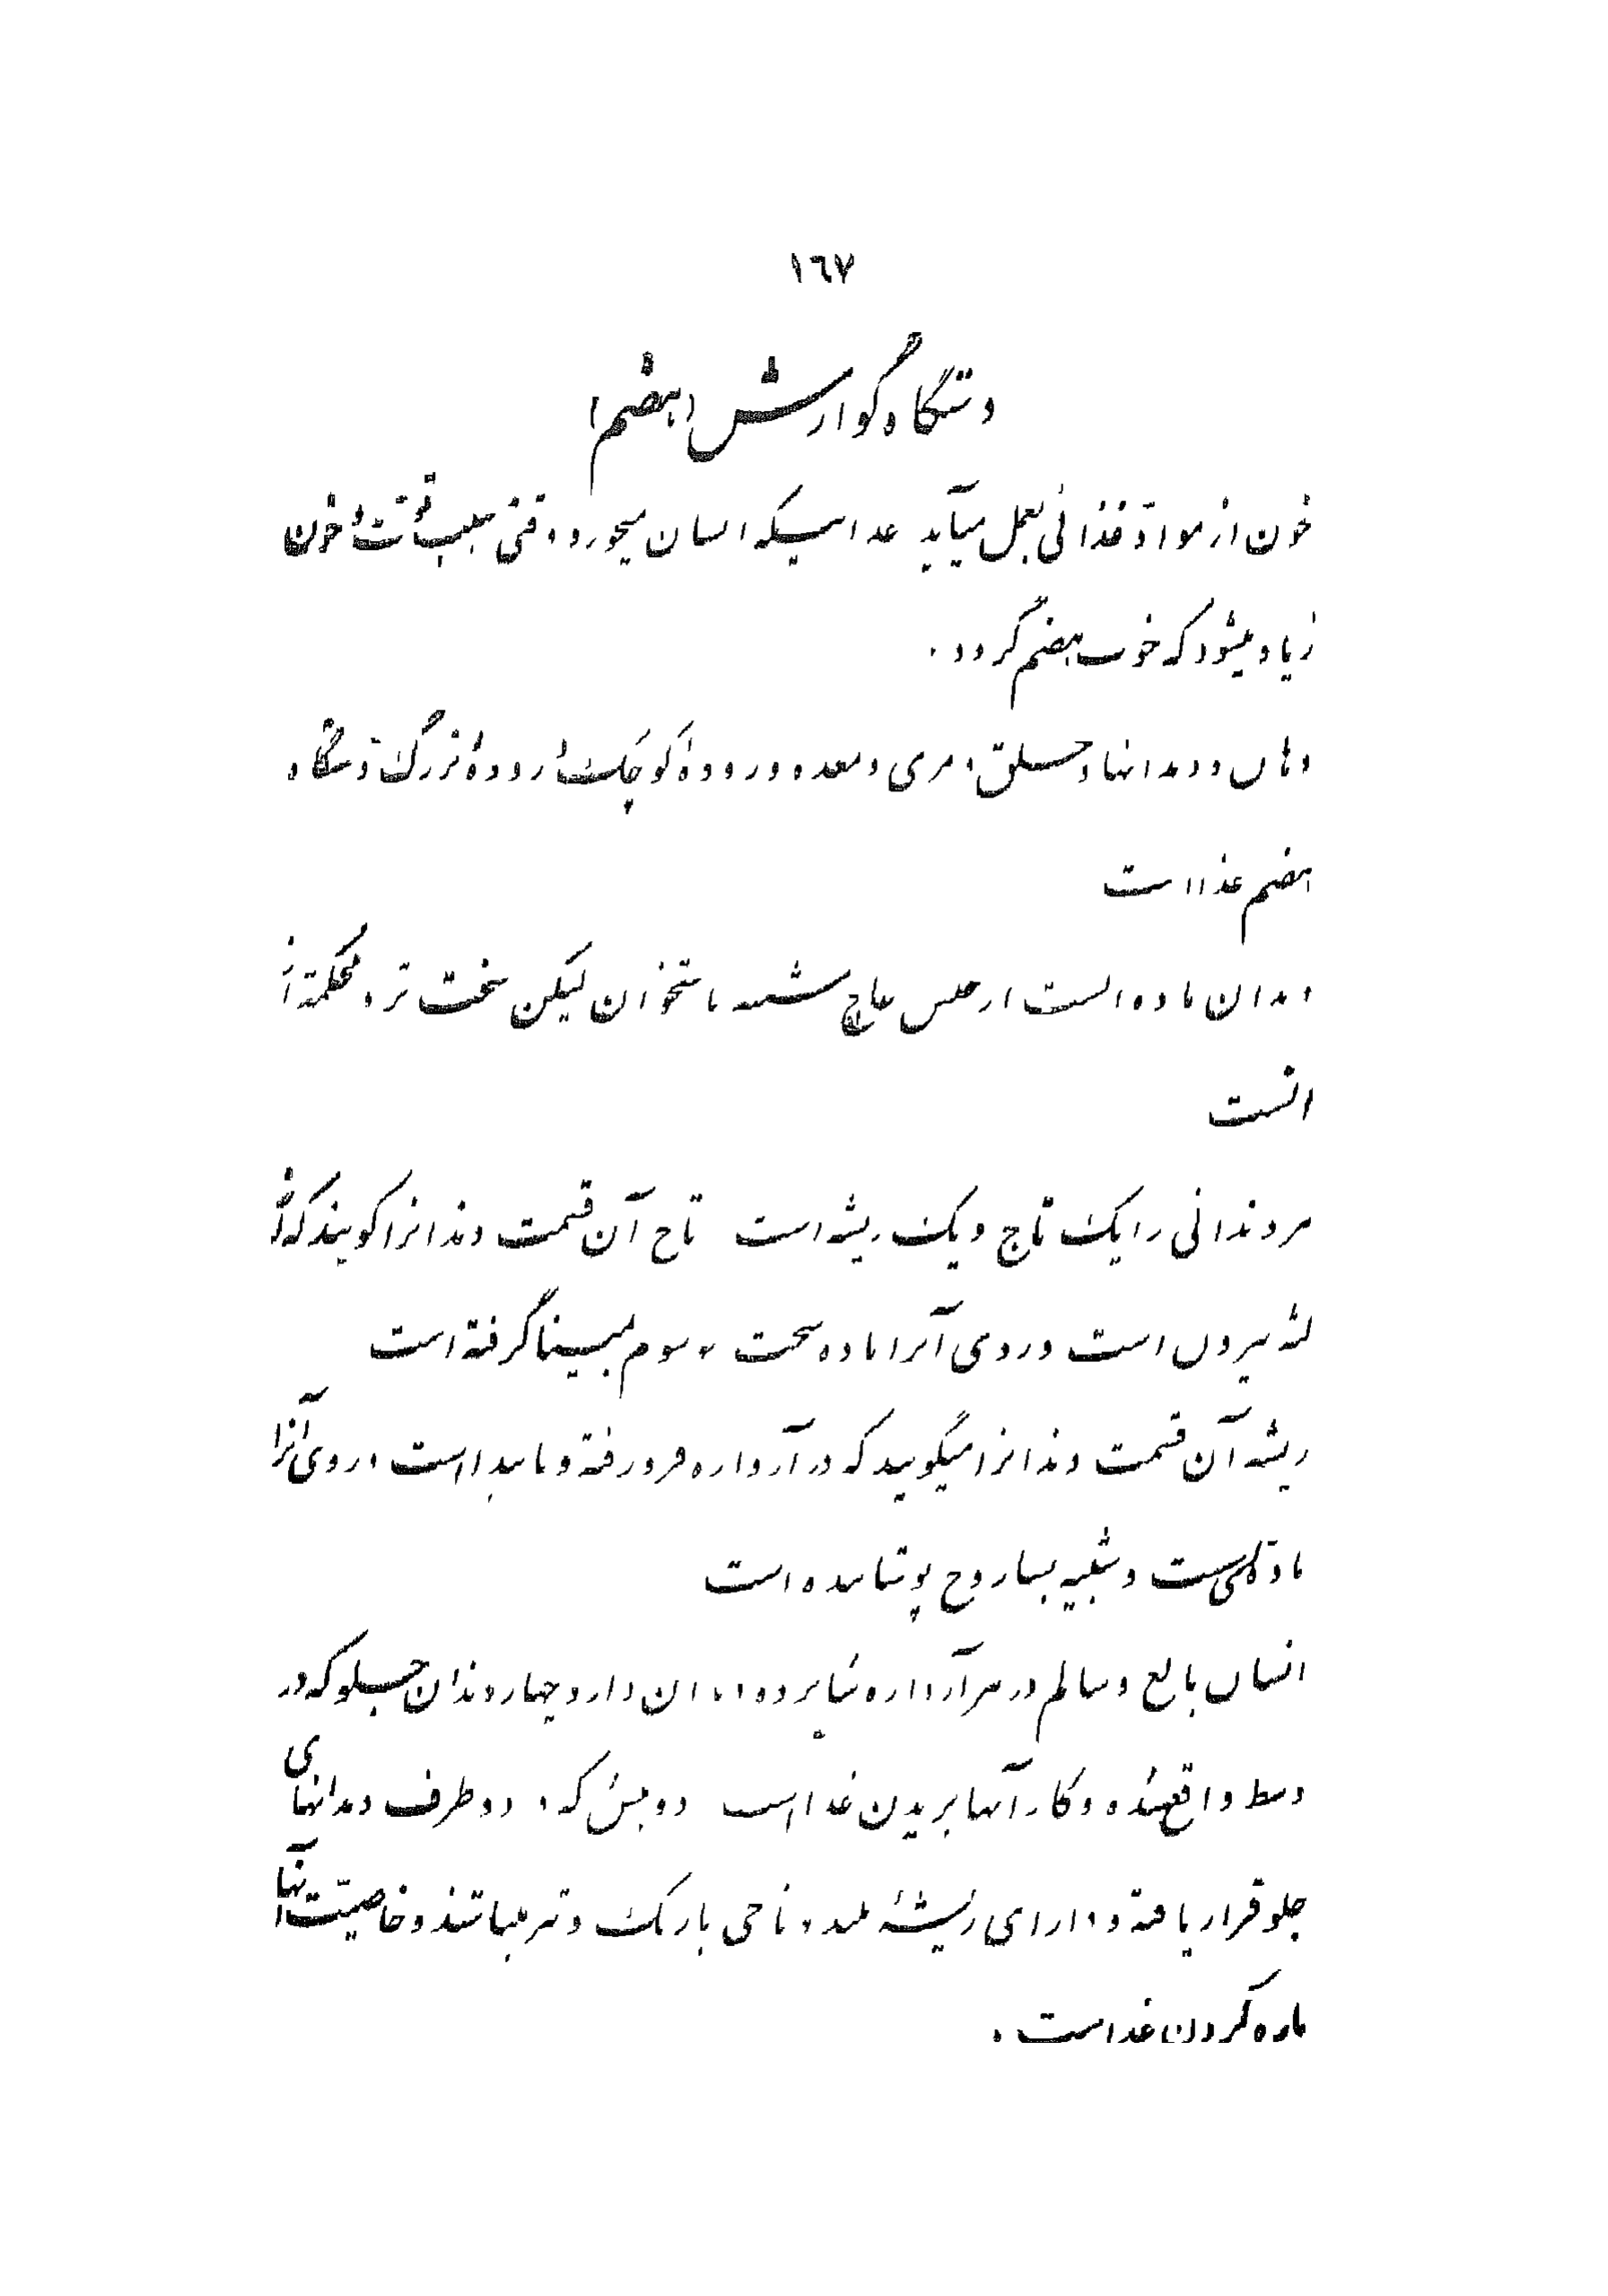 ۱٦٧
دستگاه گوارش (هضم)
خون از موادّ غذائی بعمل میآید غذائیکه انسان میخورد وقتی سبب قوّت و خون
زیاد میشود که خوب هضم گردد .
دهان و دندانها و حلق و مری و معده و رودهٔ کوچک و رودهٔ بزرگ دستگاه
هضم غذا است
دندان ماده ایست از جنس عاج شبیه باستخوان لیکن سخت تر و محکمتر از
انست
هر دندانی را یک تاج و یک ریشه است تاج آن قسمت دندانرا گویند که از
لثه بیرون است و روی آنرا ماده سخت موسوم بمینا گرفته است
ریشه آن قسمت دندانرا میگویند که در آرواره فرو رفته و ناپیدا است و روی آنرا
مادّه ایست و شبیه بساروج پوشانیده است
انسان بالغ و سالم در هر آرواره شانزده دندان دارد چهار دندان جلو که در
وسط واقع شده و کار آنها بریدن غذا است دو نیش که در دو طرف دندانهای
جلو قرار یافته و دارای ریشهٔ بلند و تاجی باریک و تیز میباشند و خاصیّت آنها
پاره کردن غذاست .